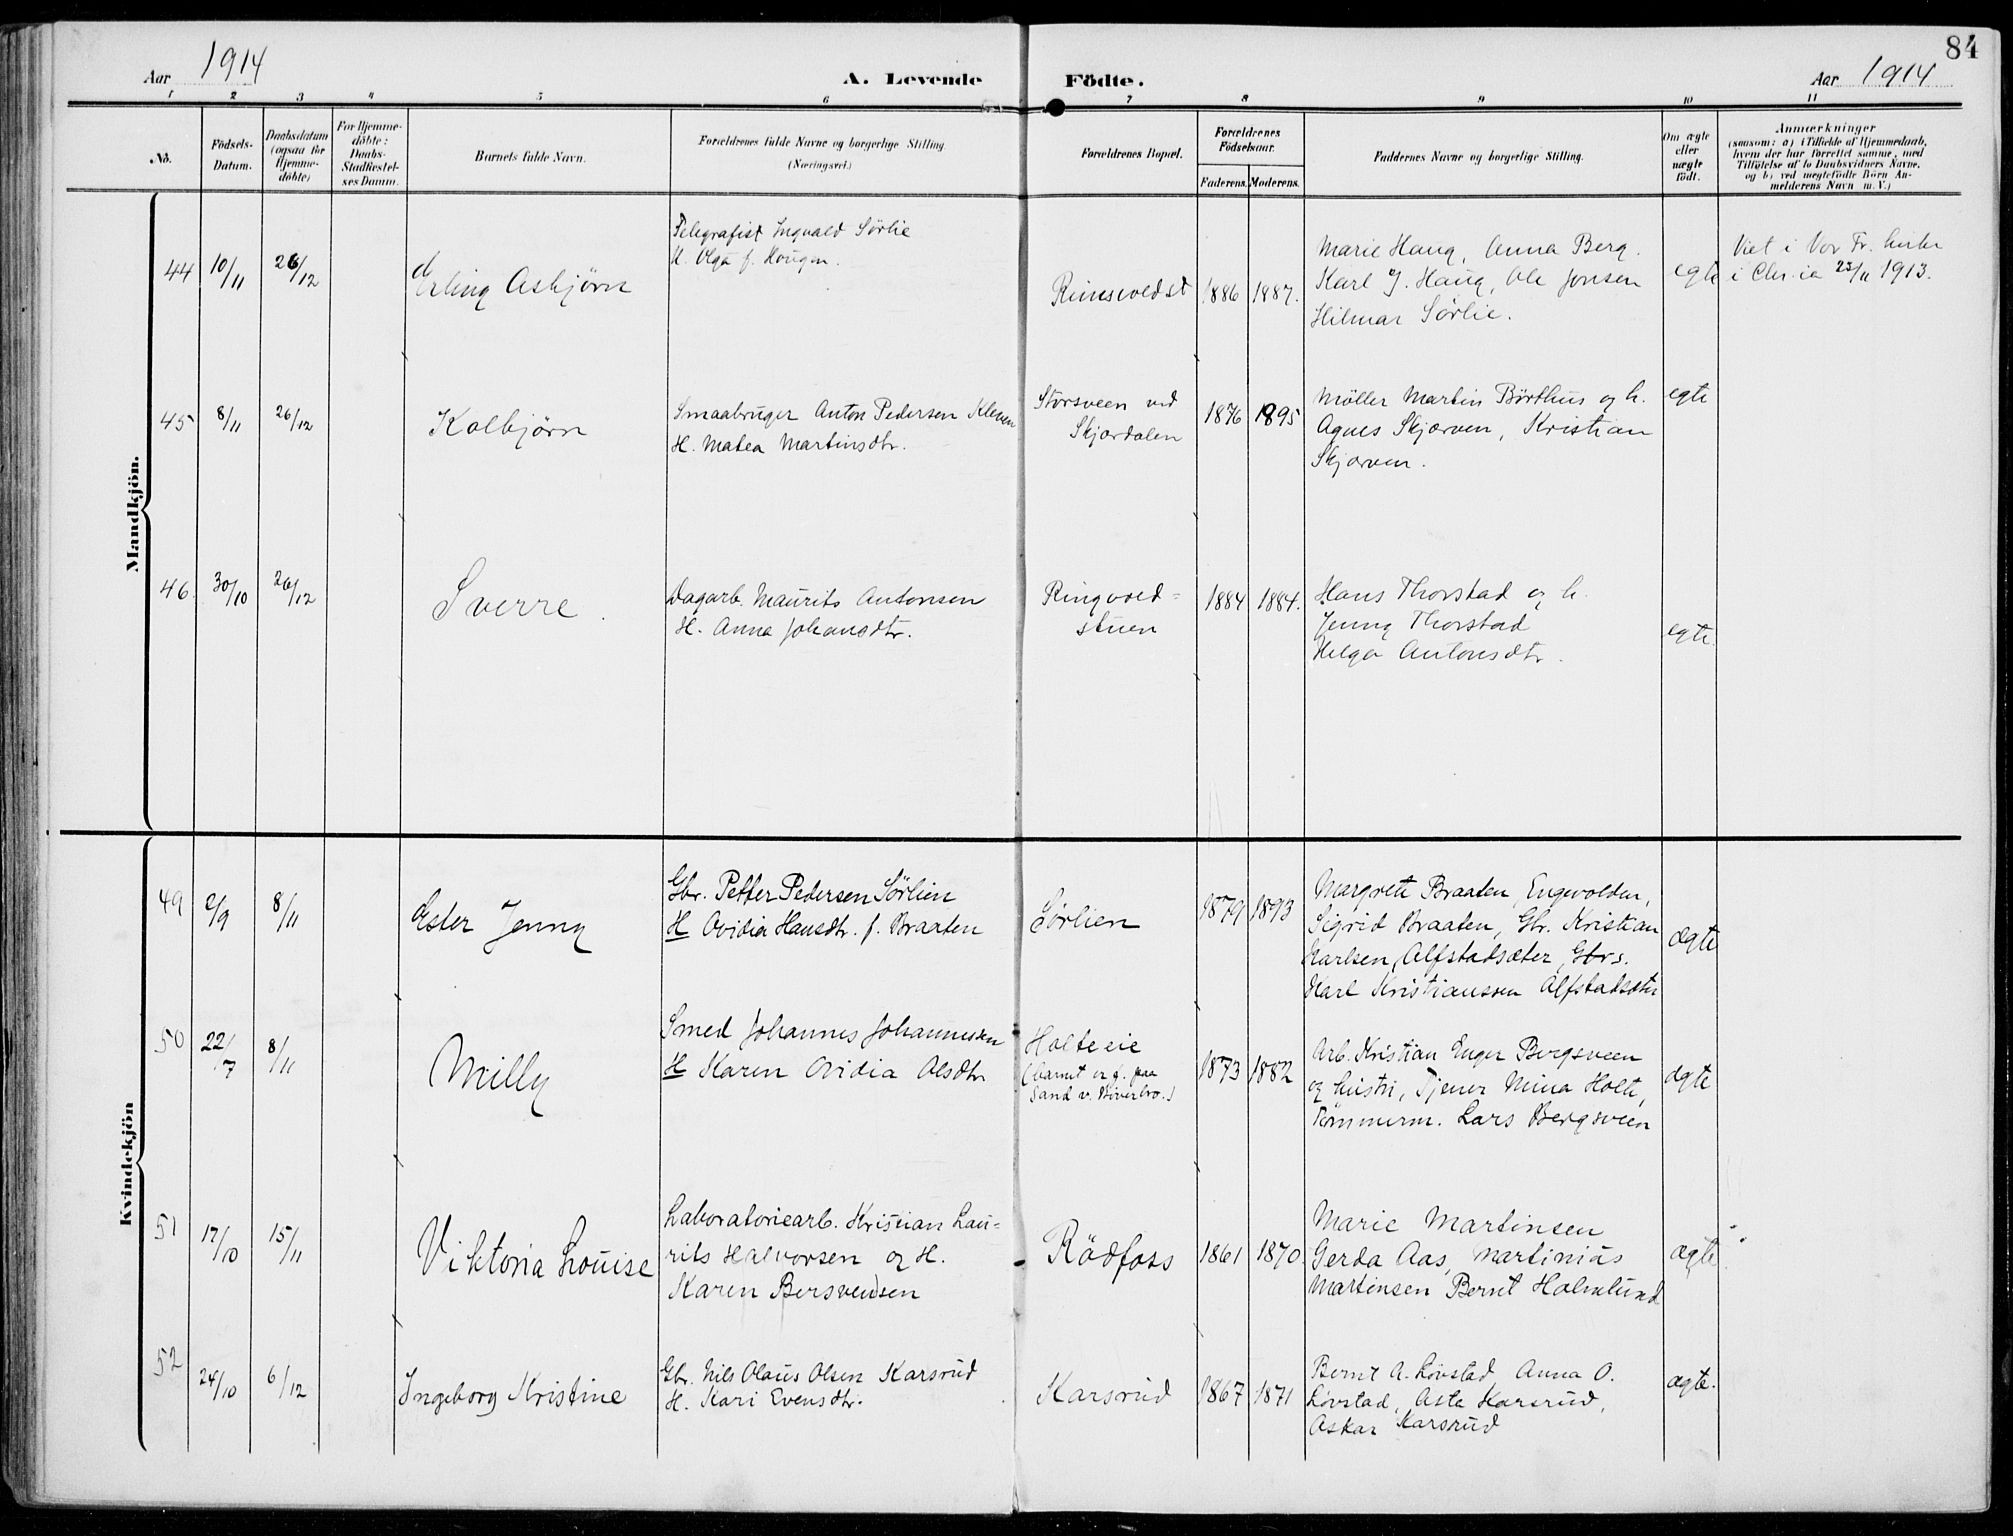 84
Aar 1914
A. Levende Födte.
Aar 1914
1 2 3 4 5 6 7 8 9 10 11
No.
Födsels-
Datum.
Daabsdatum
(ogsaa for
Hjemme-
döbte)
For Hjemme-
döbte:
Daabs-
Stadfæstel-
ses Datum.
Barnets fulde Navn.
Forældrenes fulde Navne og borgerlige Stilling.
(Næringsvei.)
Forældrenes Bopæl.
Forældrenes
Födselsaar.
Faderens. Moderens.
Faddernes Navne og borgerlige Stilling.
Om ægte
eller
uægte
födt.
Anmærkninger
(saasom: a) i Tilfælde af Hjemmedaab,
hvem der har forrettet samme, med
Tilföielse af to Daabsvidners Navne,
og b) ved uægtefödte Börn An-
melderens Navn m. V.)
Mandkjön.
44 10/11 26/12
Erling Asbjørn
Telegrafist Ingvald Sørlie
H. Olga f. Hougen.
1886 1887.
Marie Haug, Anna Berg.
Karl J. Haug, Ole Jonsen
Hilmar Sørlie.
egte
Viet i Vor Fr. kirke
i Chr.ia 23/11 1913.
45 8/11 26/12
Kolbjørn
Smaabruger Anton Pedersen Kleven
H. Matea Martinsdtr.
Storsveen ved
Skjærdalen
1876 1895
Möller Martin Börthus og h.
Agnes Skjærven, Kristian
Skjærven.
egte
46. 30/10 26/12
Sverre.
Dagarb. Maurits Antonsen
H. Anna Johansdtr.
Ringvold=
stuen
1884 1884.
Hans Thorstad og h.
Jenny Thorstad
Helga Antonsdtr.
egte.
Kvindekjön
49 2/9 8/11
Ester Jenny
Gbr. Petter Pedersen Sørlien
H Ovidia Hansdtr. f. Braaten
Sørlien
1879 1893
Margrete Braaten, Engevolden,
Sigrid Braaten, Gbr. Kristian
Karlsen, Alfstadsæter, Gbrs.
Karl Kristianssen Alfstadsæter
ægte
50 22/7 8/11
Milly
Smed Johannes Johannessen
H Karen Ovidia Olsdtr
Holteeie
(barnet er f. paa
Sand v. Bøverbro.)
1873 1882
Arb. Kristian Enger Bergsveen
og hustru, Tjener Mina Holte,
Tömmerm. Lars Bergsveen
ægte
51 17/10 15/11
Viktoria Louise
Laboratoriearb. Kristian Lau=
rits Halvorsen og H.
Karen Bersvendsen
Rödfoss
1861 1870.
Marie Martinsen
Gerda Aas, Martinius
Martinsen Bernt Holmlund
ægte
52 24/10 6/12
Ingeborg Kristine
Gbr. Nils Olaus Olsen Karsrud
H. Kari Evensdtr.
Karsrud
1867 1871
Bernt A. Løvstad, Anna O.
Løvstad, Asta Karsrud,
Oskar Karsrud
ægte.